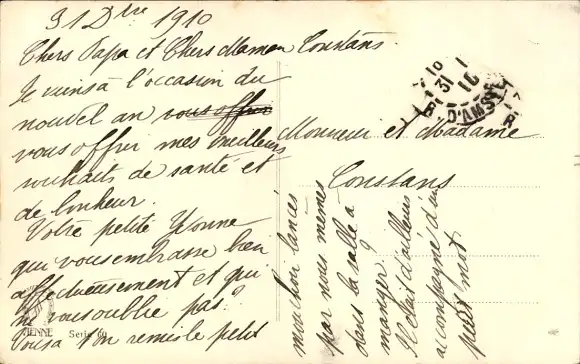 31 Dbre 1910
Chers Papa et Chers Maman Constans.
Je viens à l'occasion du
nouvel an vous offrir
vous offrir mes meilleurs
souhaits de santé et
de bonheur.
Votre petite Yvonne
qui vous embrasse bien
affectueusement et qui
ne vous oublie pas.
Vous a t'on remis le petit
mouchoir lancés
par nous mêmes
dans la salle à
manger?
Il était d'ailleurs
accompagné d'un
petit mot.
Monsieur et Madame
Constans
31
10
VIENNE
Serie 60